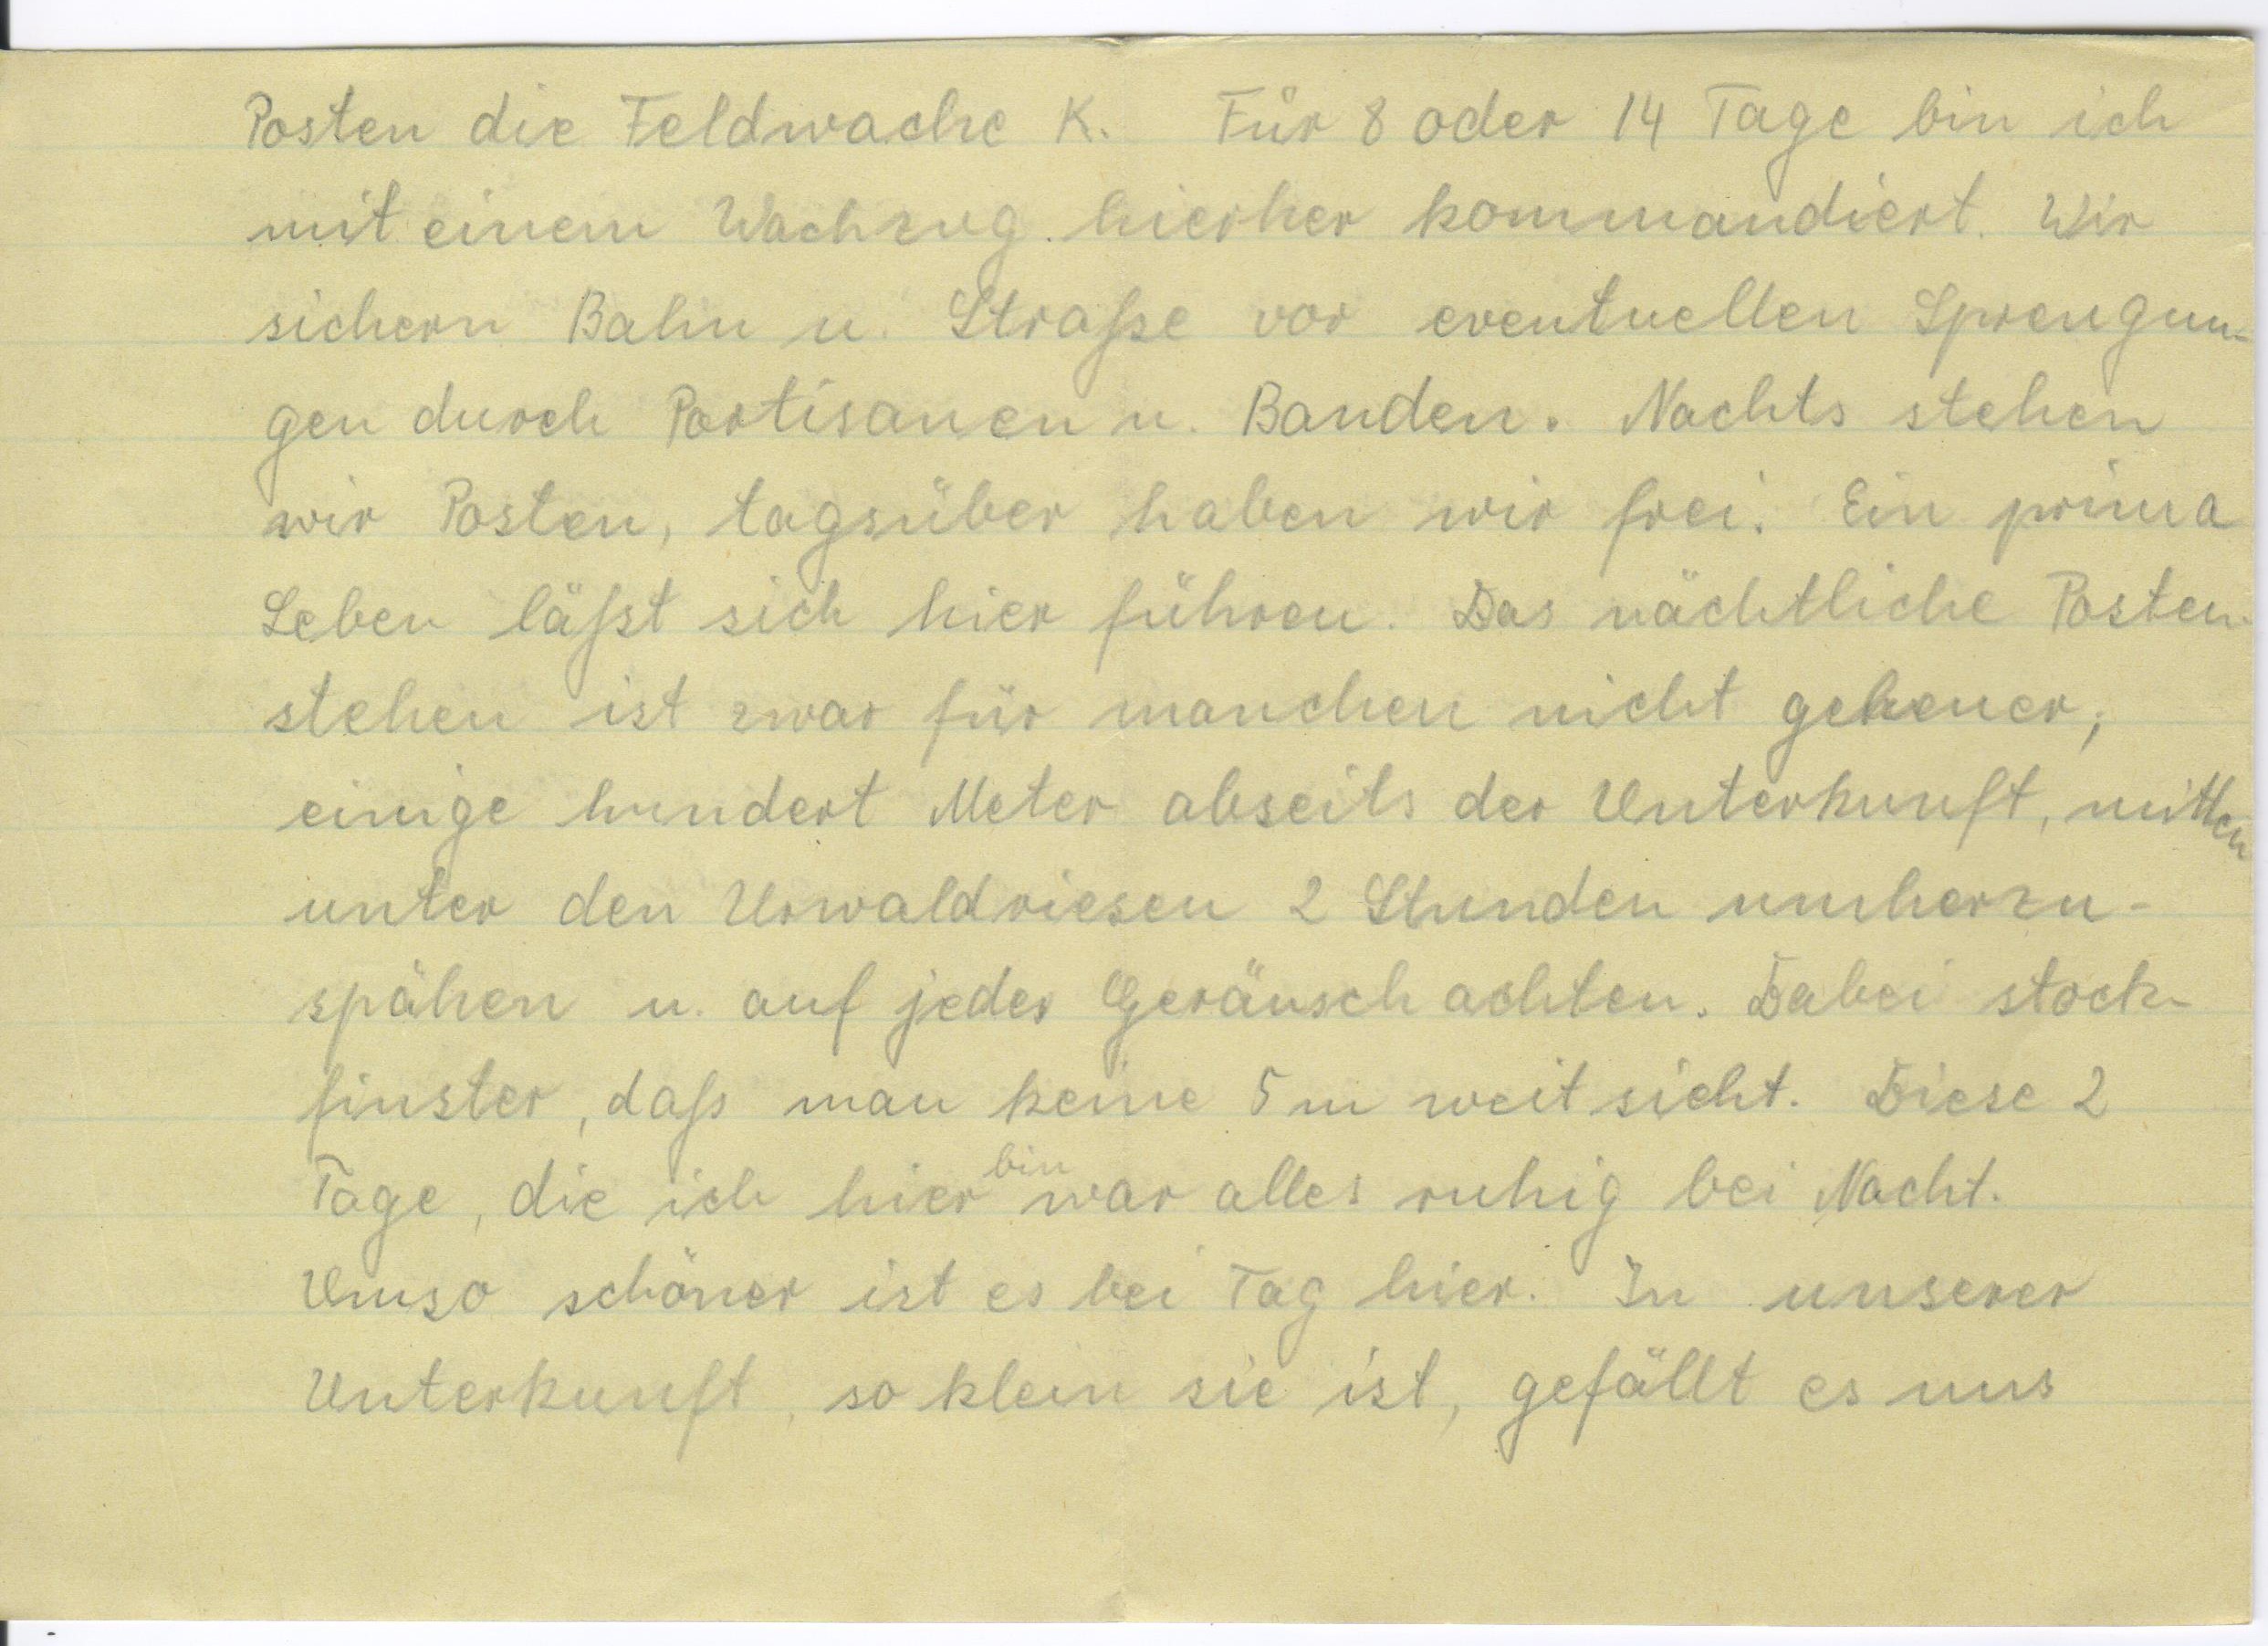 Posten die Feldwache K. Für 8 oder 14 Tage bin ich
mit einem Wachzug hierher kommandiert. Wir
sichern Bahn u. Straße vor eventuellen Sprengun-
gen durch Partisanen u. Banden. Nachts stehen
wir Posten, tagsüber haben wir frei. Ein prima
Leben läßt sich hier führen. Das nächtliche Posten-
stehen ist zwar für manchen nicht geheuer,
einige hundert Meter abseits der Unterkunft, mitten
unter den Urwaldriesen 2 Stunden umherzu-
spähen u. auf jedes Geräusch achten. Dabei stock-
finster, daß man keine 5 m weit sieht. Diese 2
Tage, die ich hier bin war alles ruhig bei Nacht.
Umso schöner ist es bei Tag hier. In unserer
Unterkunft, so klein sie ist, gefällt es uns